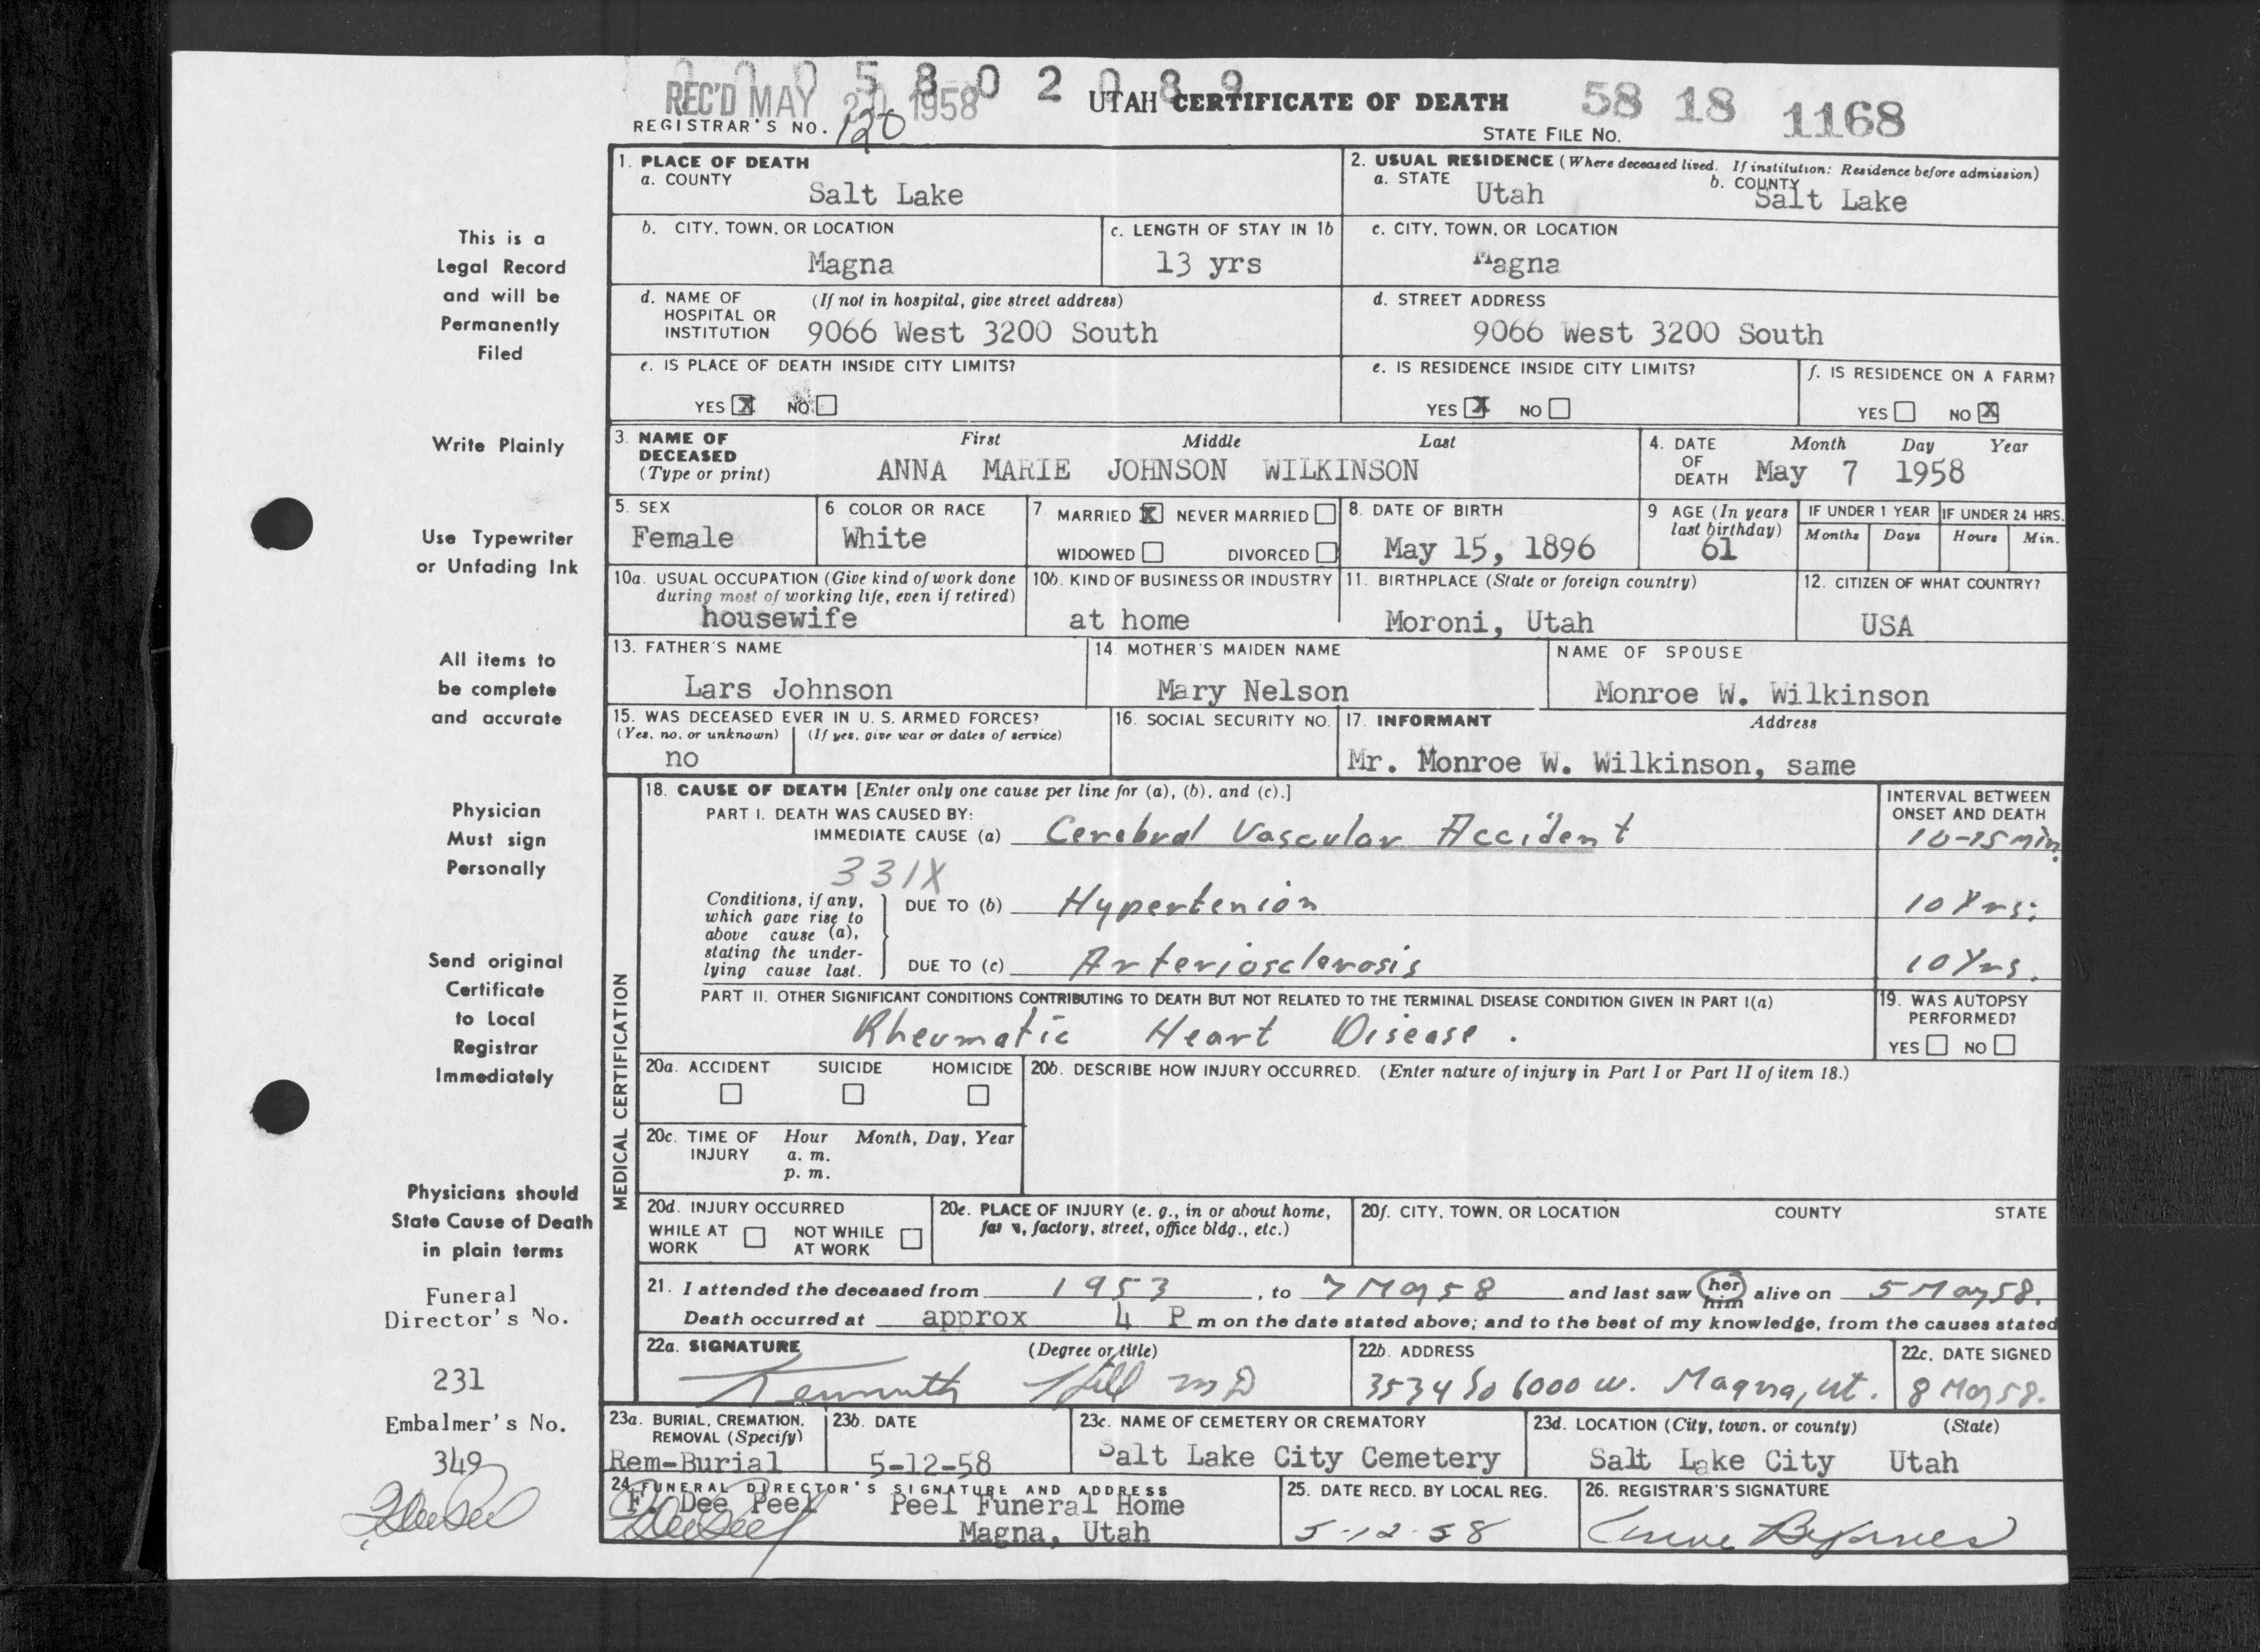 0 0 0 5 8 0 2 0 8 9
REC'D MAY 20 1958
UTAH CERTIFICATE OF DEATH
58 18 1168
REGISTRAR'S NO. 120
STATE FILE NO.
This is a
Legal Record
and will be
Permanently
Filed
Write Plainly
Use Typewriter
or Unfading Ink
All items to
be complete
and accurate
Physician
Must sign
Personally
Send original
Certificate
to Local
Registrar
Immediately
Physicians should
State Cause of Death
in plain terms
Funeral
Director's No.
231
Embalmer's No.
349
1. PLACE OF DEATH
a. COUNTY
Salt Lake
2. USUAL RESIDENCE (Where deceased lived. If institution: Residence before admission)
a. STATE Utah b. COUNTY Salt Lake
b. CITY, TOWN, OR LOCATION
Magna
c. LENGTH OF STAY IN 1b
13 yrs
c. CITY, TOWN, OR LOCATION
Magna
d. NAME OF (If not in hospital, give street address)
HOSPITAL OR
INSTITUTION 9066 West 3200 South
d. STREET ADDRESS
9066 West 3200 South
e. IS PLACE OF DEATH INSIDE CITY LIMITS?
YES X NO
e. IS RESIDENCE INSIDE CITY LIMITS?
YES X NO
f. IS RESIDENCE ON A FARM?
YES NO X
3. NAME OF First Middle Last
DECEASED
(Type or print) ANNA MARIE JOHNSON WILKINSON
4. DATE Month Day Year
OF
DEATH May 7 1958
5. SEX
Female
6. COLOR OR RACE
White
7. MARRIED X NEVER MARRIED
WIDOWED DIVORCED
8. DATE OF BIRTH
May 15, 1896
9 AGE (In years
last birthday)
61
IF UNDER 1 YEAR
Months Days
IF UNDER 24 HRS.
Hours Min.
10a. USUAL OCCUPATION (Give kind of work done
during most of working life, even if retired)
housewife
10b. KIND OF BUSINESS OR INDUSTRY
at home
11. BIRTHPLACE (State or foreign country)
Moroni, Utah
12. CITIZEN OF WHAT COUNTRY?
USA
13. FATHER'S NAME
Lars Johnson
14. MOTHER'S MAIDEN NAME
Mary Nelson
NAME OF SPOUSE
Monroe W. Wilkinson
15. WAS DECEASED EVER IN U. S. ARMED FORCES?
(Yes, no, or unknown) (If yes, give war or dates of service)
no
16. SOCIAL SECURITY NO.
17. INFORMANT Address
Mr. Monroe W. Wilkinson, same
MEDICAL CERTIFICATION
18. CAUSE OF DEATH [Enter only one cause per line for (a), (b), and (c).]
PART I. DEATH WAS CAUSED BY:
IMMEDIATE CAUSE (a) Cerebral Vascular Accident
INTERVAL BETWEEN
ONSET AND DEATH
10-15 min.
331X
Conditions, if any,
which gave rise to
above cause (a),
stating the under-
lying cause last.
DUE TO (b) Hypertenion 10 Yrs.
DUE TO (c) Arteriosclerosis 10 Yrs.
PART II. OTHER SIGNIFICANT CONDITIONS CONTRIBUTING TO DEATH BUT NOT RELATED TO THE TERMINAL DISEASE CONDITION GIVEN IN PART I(a)
Rheumatic Heart Disease.
19. WAS AUTOPSY
PERFORMED?
YES NO
20a. ACCIDENT SUICIDE HOMICIDE
20b. DESCRIBE HOW INJURY OCCURRED. (Enter nature of injury in Part I or Part II of item 18.)
20c. TIME OF Hour Month, Day, Year
INJURY a. m.
p. m.
20d. INJURY OCCURRED
WHILE AT NOT WHILE
WORK AT WORK
20e. PLACE OF INJURY (e. g., in or about home,
factory, street, office bldg., etc.)
20f. CITY, TOWN, OR LOCATION COUNTY STATE
21. I attended the deceased from 1953, to 7 May 58 and last saw her him alive on 5 May 58.
Death occurred at approx 4 P m on the date stated above; and to the best of my knowledge, from the causes stated
22a. SIGNATURE (Degree or title)
Kenneth Hill MD
22b. ADDRESS
3534 So 6000 W. Magna, Ut.
22c. DATE SIGNED
8 May 58.
23a. BURIAL, CREMATION,
REMOVAL (Specify)
Rem-Burial
23b. DATE
5-12-58
23c. NAME OF CEMETERY OR CREMATORY
Salt Lake City Cemetery
23d. LOCATION (City, town, or county) (State)
Salt Lake City Utah
24. FUNERAL DIRECTOR'S SIGNATURE AND ADDRESS
F. Dee Peel Peel Funeral Home
Magna, Utah
25. DATE RECD. BY LOCAL REG.
5-12-58
26. REGISTRAR'S SIGNATURE